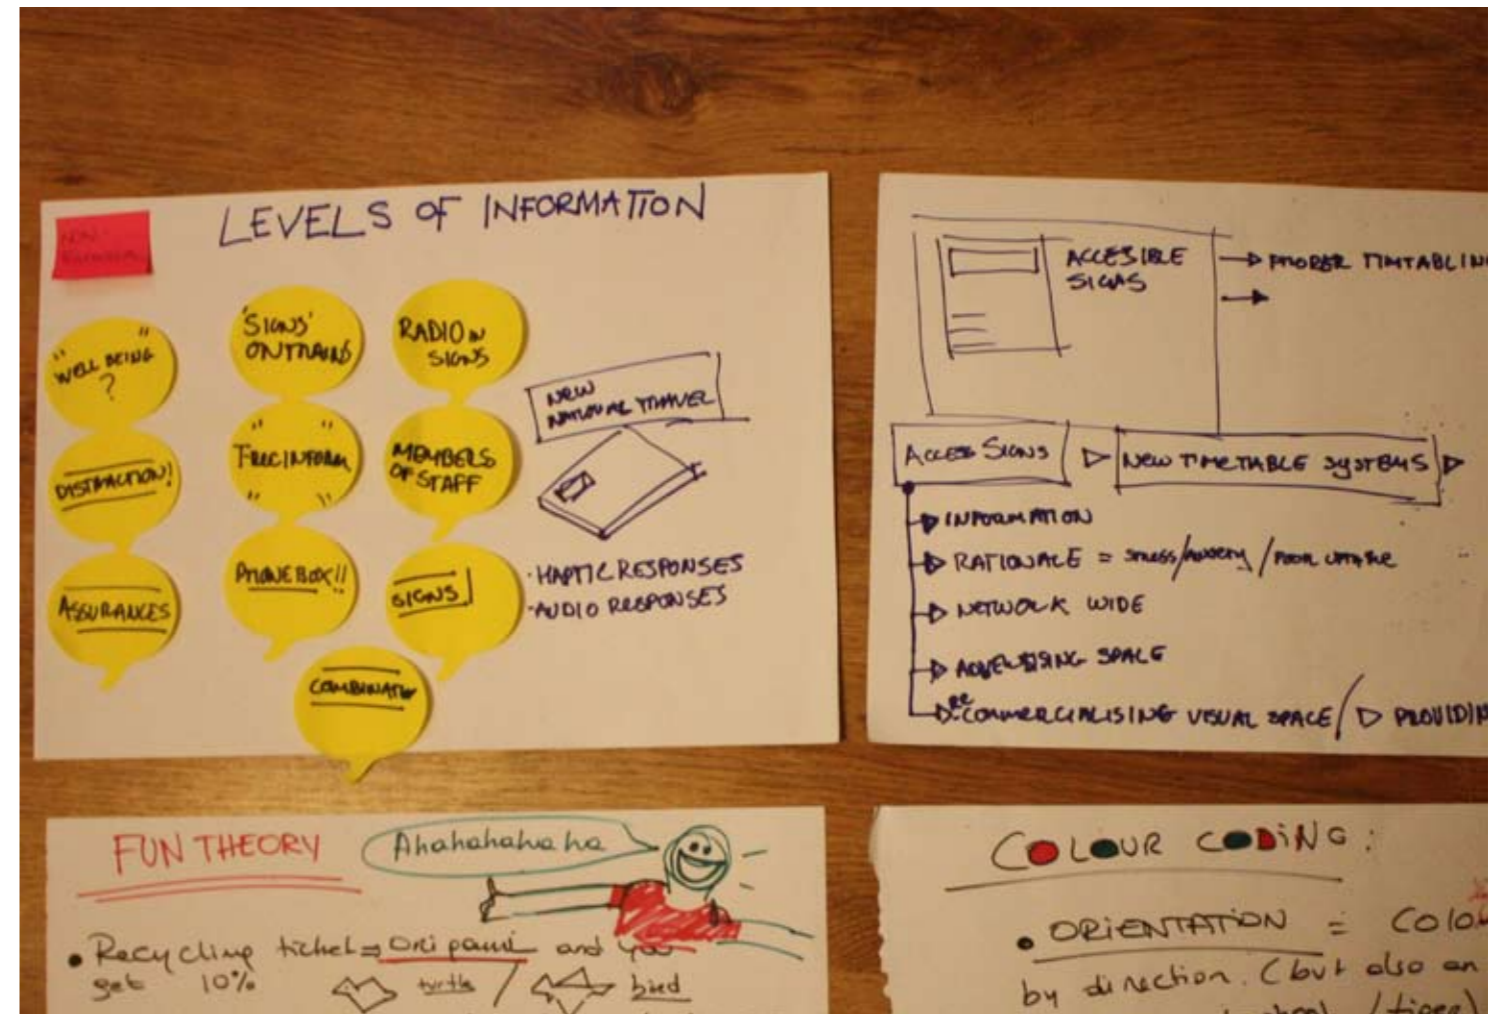 LEVELS OF INFORMATION
NON-
"WELL BEING"
?
DISTRACTION!
ASSURANCES
'SIGNS'
ON TRAINS
"FREE INFORM"
PHONE BOX!!
RADIO IN
SIGNS
MEMBERS
OF STAFF
SIGNS
COMBINATION
NEW
NATIONAL TRAVEL
·HAPTIC RESPONSES
·AUDIO RESPONSES
ACCESIBLE
SIGNS
PROPER TIMTABLING
ACCESS SIGNS
NEW TIMETABLE SYSTEMS
INFORMATION
RATIONALE = STRESS/ANXIETY / POOR
NETWORK WIDE
ADVERTISING SPACE
RE
COMMERCIALISING VISUAL SPACE / PROVIDIN
FUN THEORY
Ahahahahaha
• Recycling ticket = Origami and you
get 10% turtle / bird
COLOUR CODING:
• ORIENTATION = COLO
by direction. (but also an
(tiger)